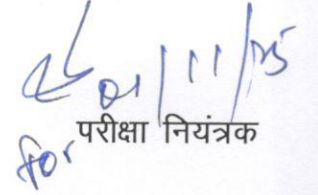 01/11/25
for परीक्षा नियंत्रक